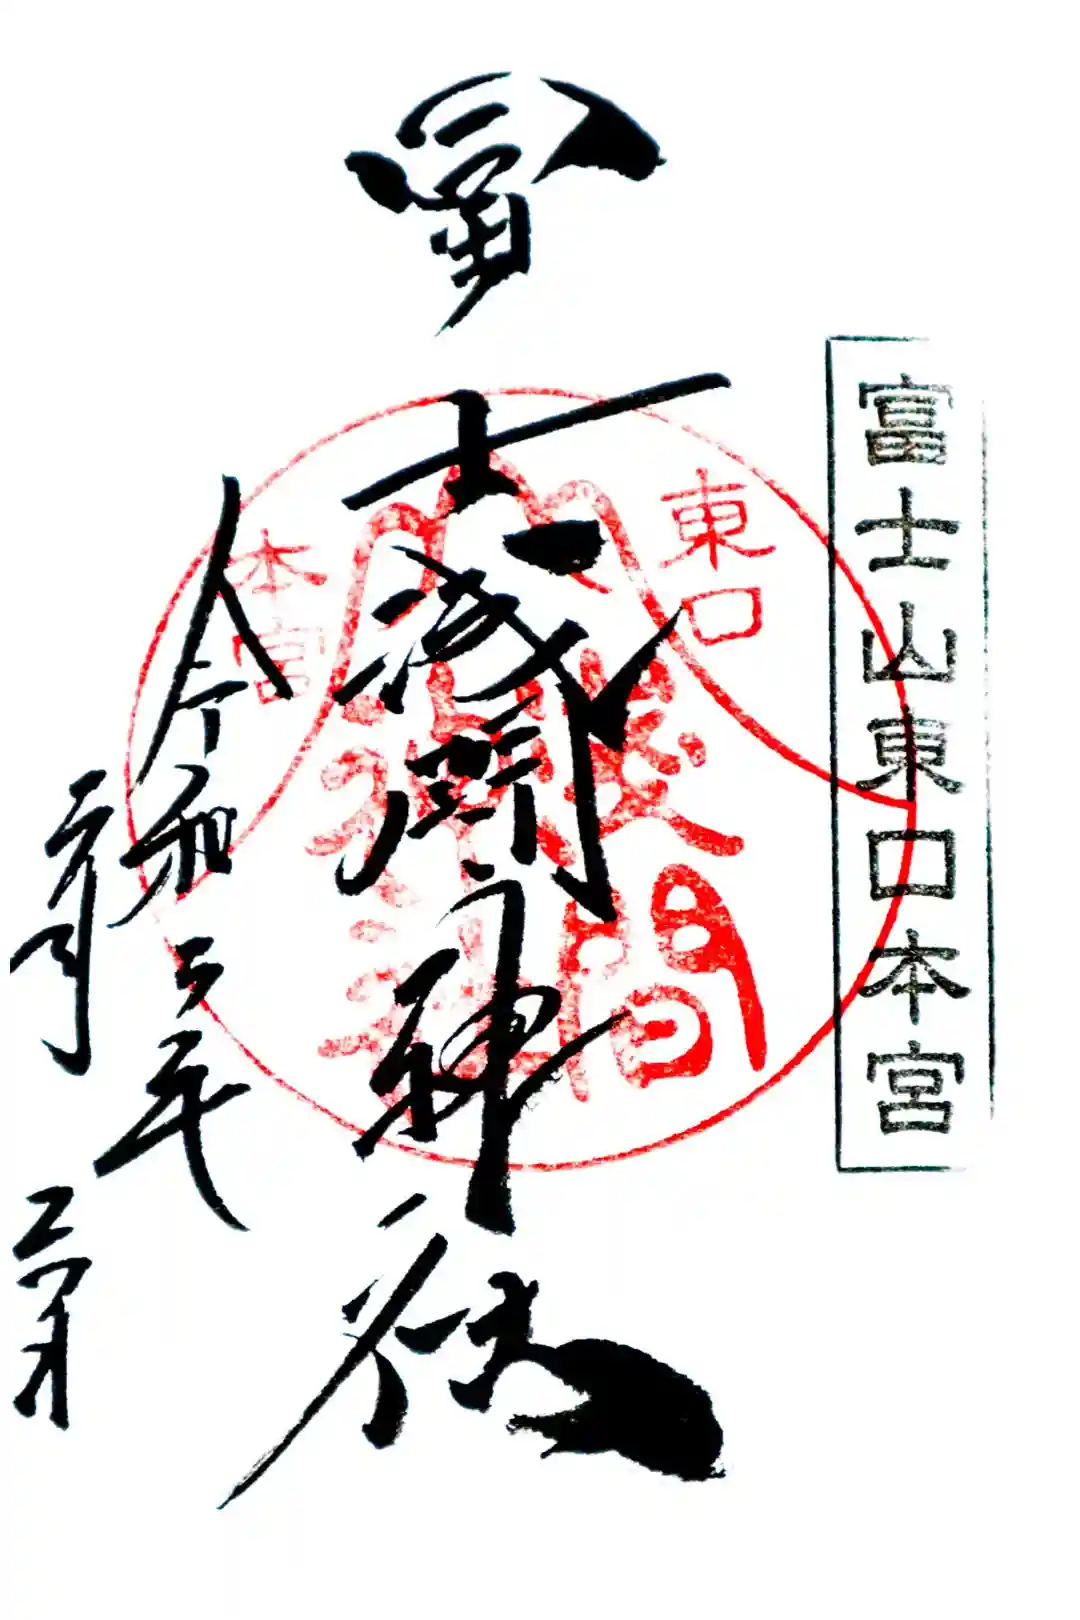 富士山東口本宮
冨士浅間神社
東口
本宮
浅間
神社
令和